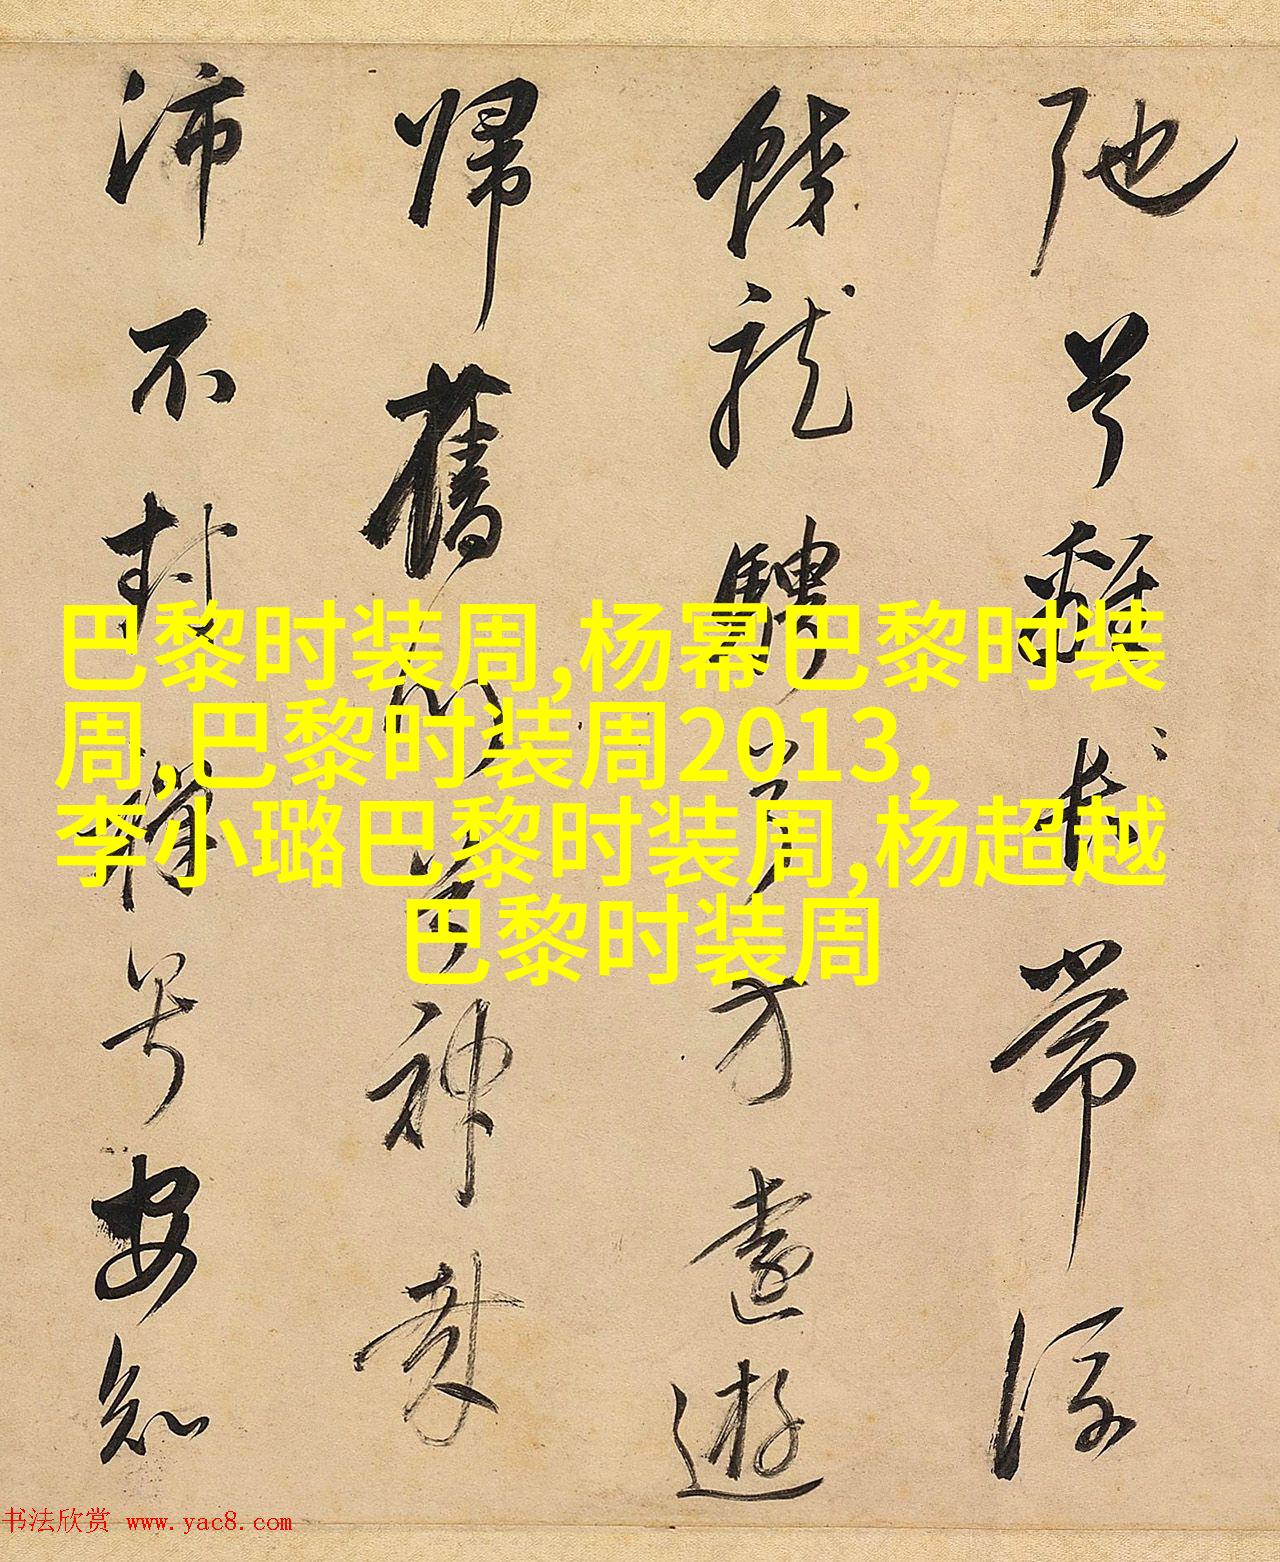 巴黎时装周,杨幂巴黎时装
周,巴黎时装周2013,
李小璐巴黎时装周,杨超越
巴黎时装周
兮離帶
龍騁方遠遊
歸舊神
沛不封安知
书法欣赏 www.yac8.com